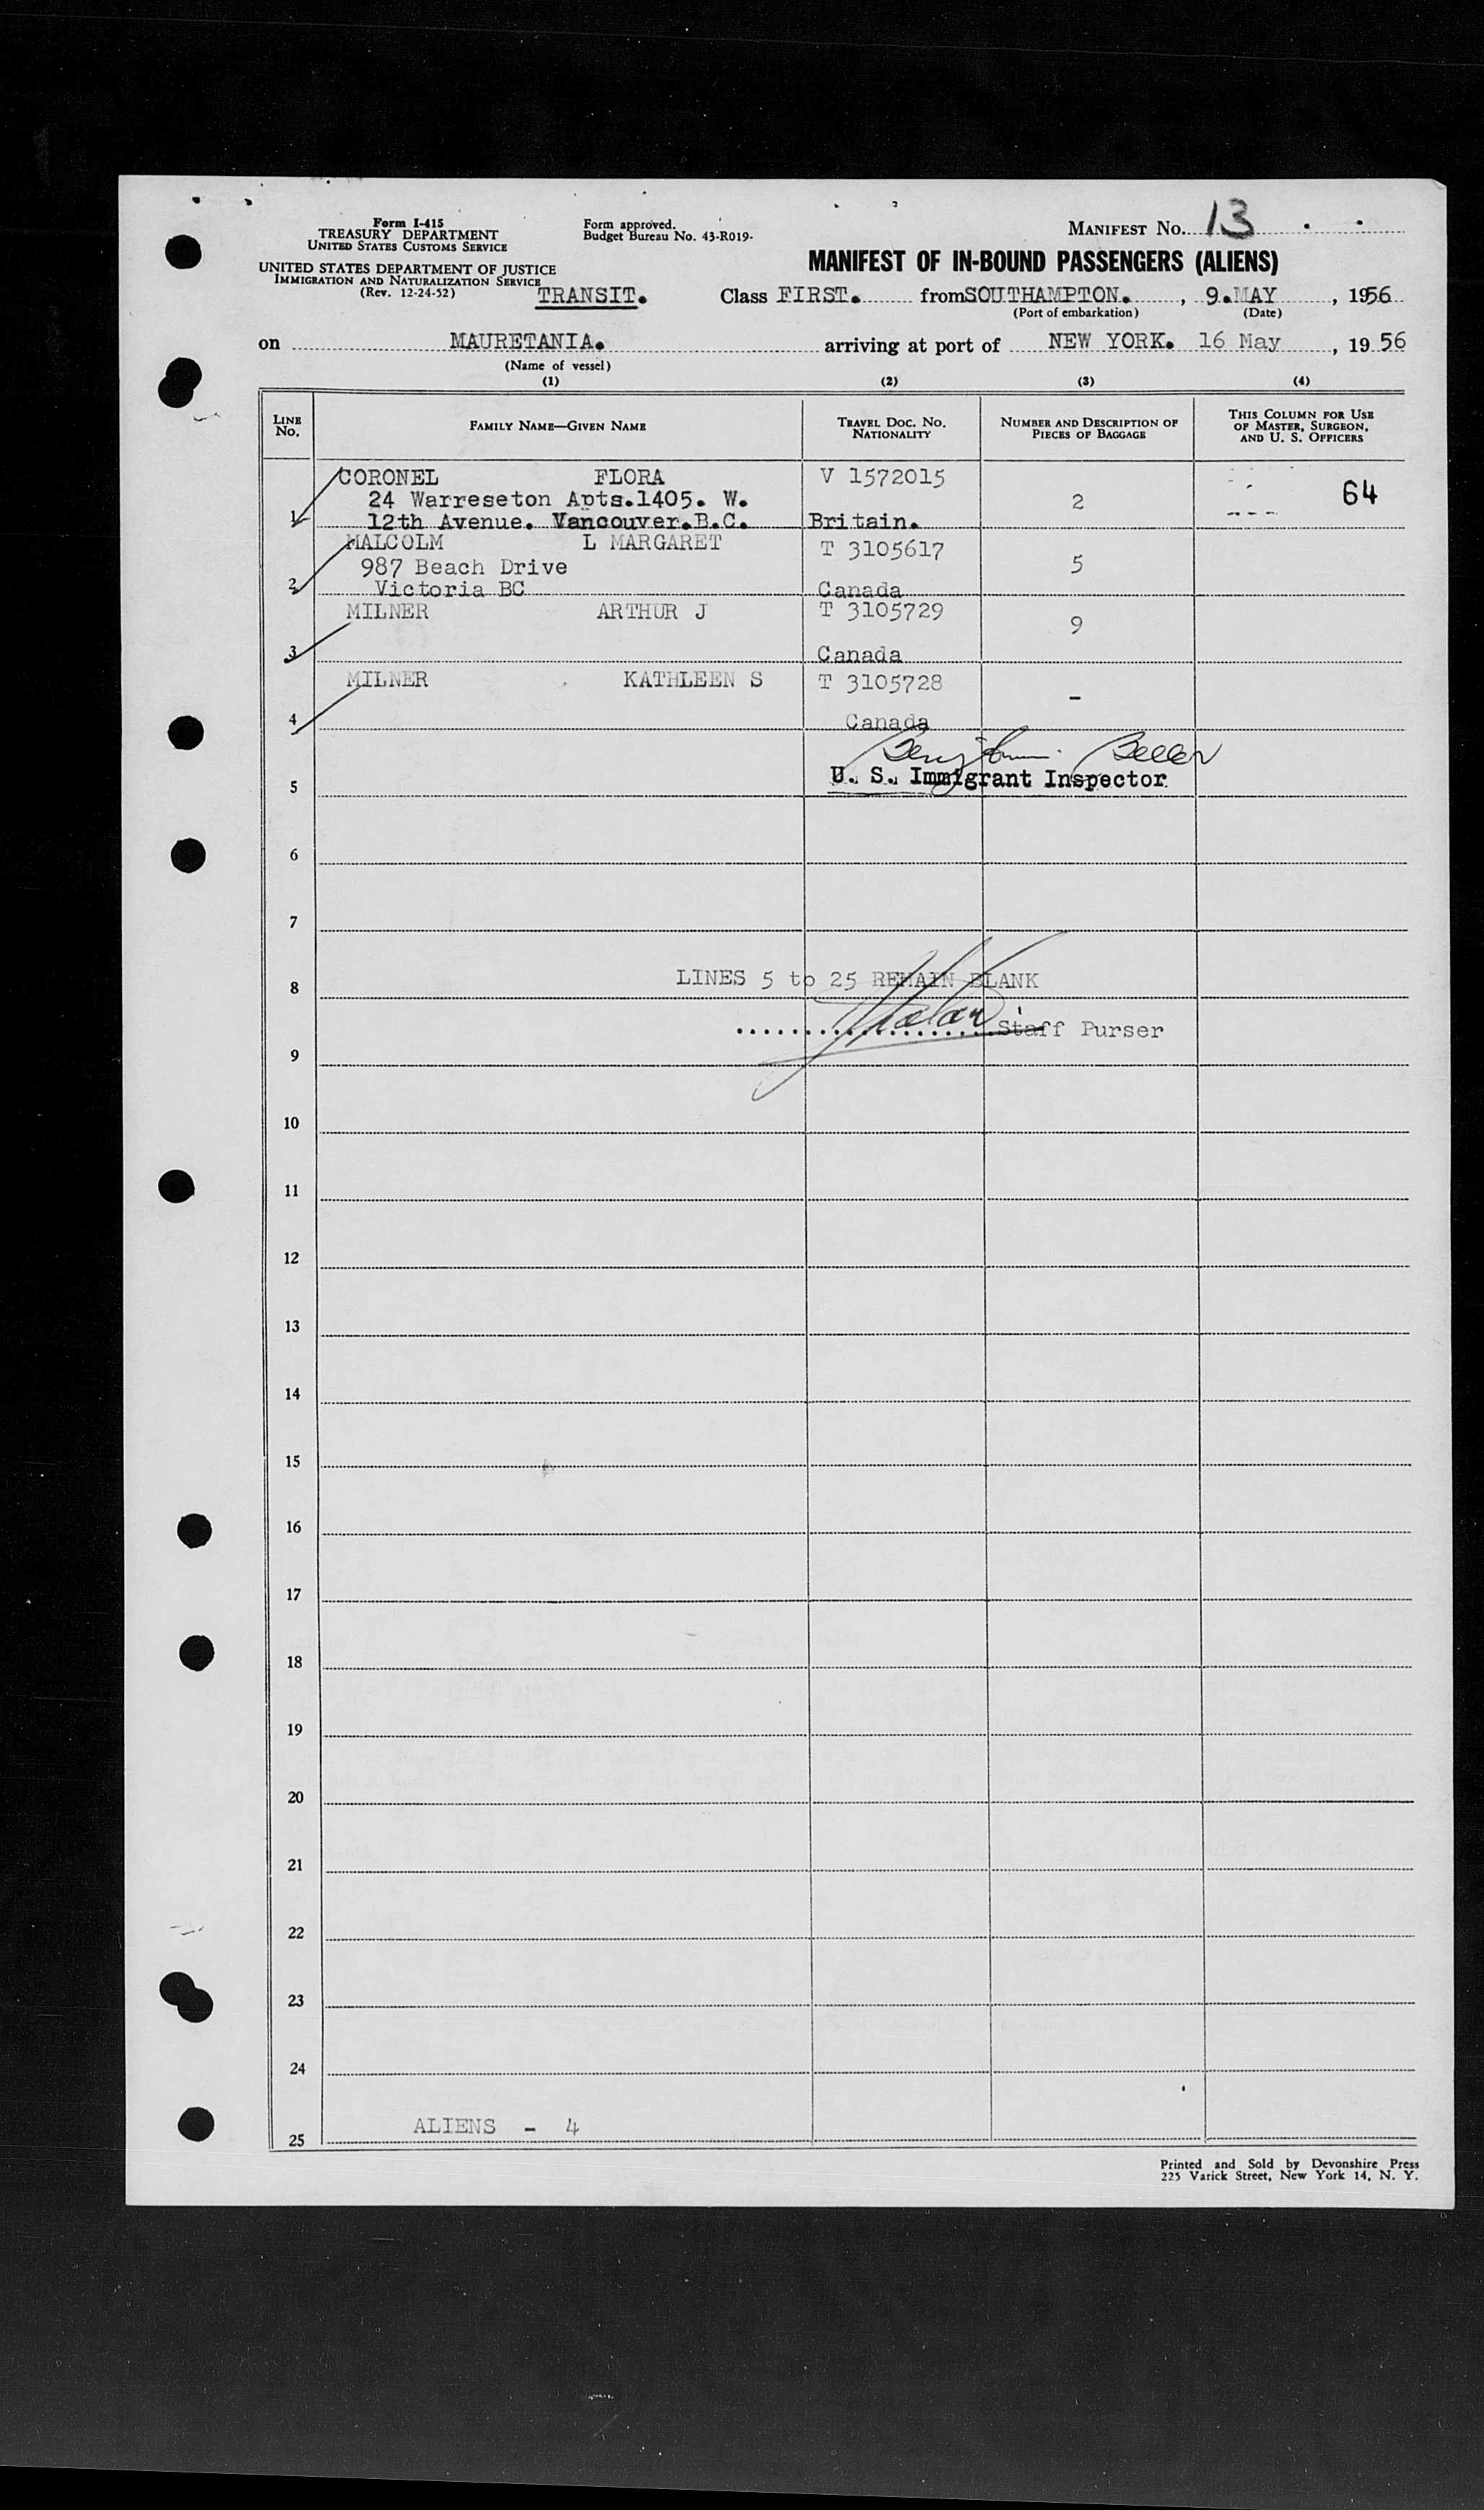 Form I-415
TREASURY DEPARTMENT
UNITED STATES CUSTOMS SERVICE
UNITED STATES DEPARTMENT OF JUSTICE
IMMIGRATION AND NATURALIZATION SERVICE
(Rev. 12-24-52)
Form approved.
Budget Bureau No. 43-R019-
MANIFEST No. 13
MANIFEST OF IN-BOUND PASSENGERS (ALIENS)
TRANSIT. Class FIRST. from SOUTHAMPTON. , 9.MAY , 1956
(Port of embarkation) (Date)
on MAURETANIA. arriving at port of NEW YORK. 16 May , 19 56
(Name of vessel)
(1) (2) (3) (4)
LINE No. FAMILY NAME—GIVEN NAME TRAVEL DOC. NO. NATIONALITY NUMBER AND DESCRIPTION OF PIECES OF BAGGAGE THIS COLUMN FOR USE OF MASTER, SURGEON, AND U. S. OFFICERS
CORONEL FLORA V 1572015
24 Warreseton Apts.1405. W. 2 64
1 12th Avenue. Vancouver.B.C. Britain.
MALCOLM L MARGARET T 3105617
987 Beach Drive 5
2 Victoria BC Canada
MILNER ARTHUR J T 3105729
9
3 Canada
MILNER KATHLEEN S T 3105728
-
4 Canada
Benjamin Beller
U. S. Immigrant Inspector
5
6
7
LINES 5 to 25 REMAIN BLANK
8
Staff Purser
9
10
11
12
13
14
15
16
17
18
19
20
21
22
23
24
ALIENS - 4
25
Printed and Sold by Devonshire Press
225 Varick Street, New York 14, N. Y.